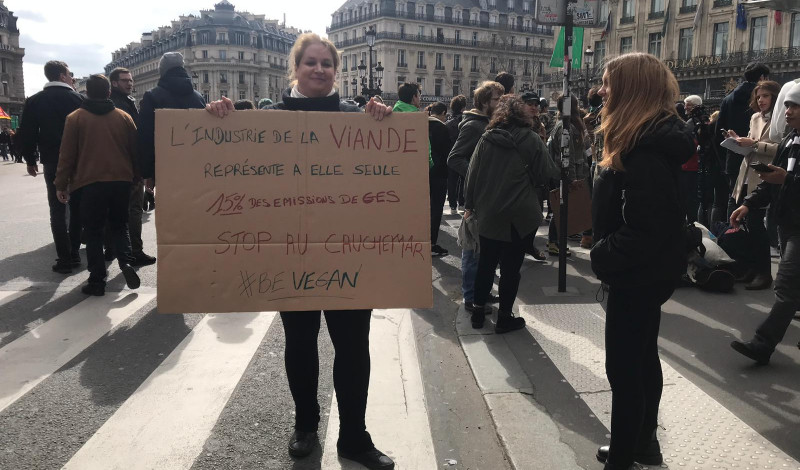 L'INDUSTRIE DE LA VIANDE
REPRÉSENTE A ELLE SEULE
15% DES EMISSIONS DE GES
STOP AU CAUCHEMAR
#BE VEGAN
DE LA PAIX